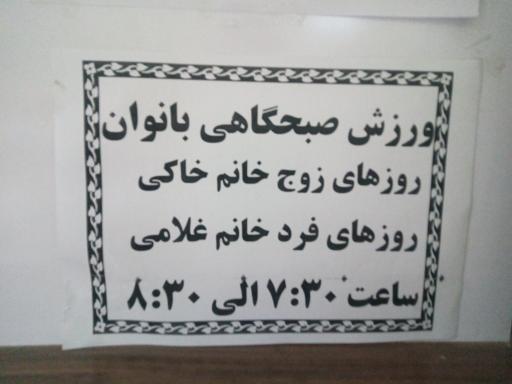 ورزش صبحگاهی بانوان
روزهای زوج خانم خاکی
روزهای فرد خانم غلامی
ساعت ۷:۳۰ الی ۸:۳۰